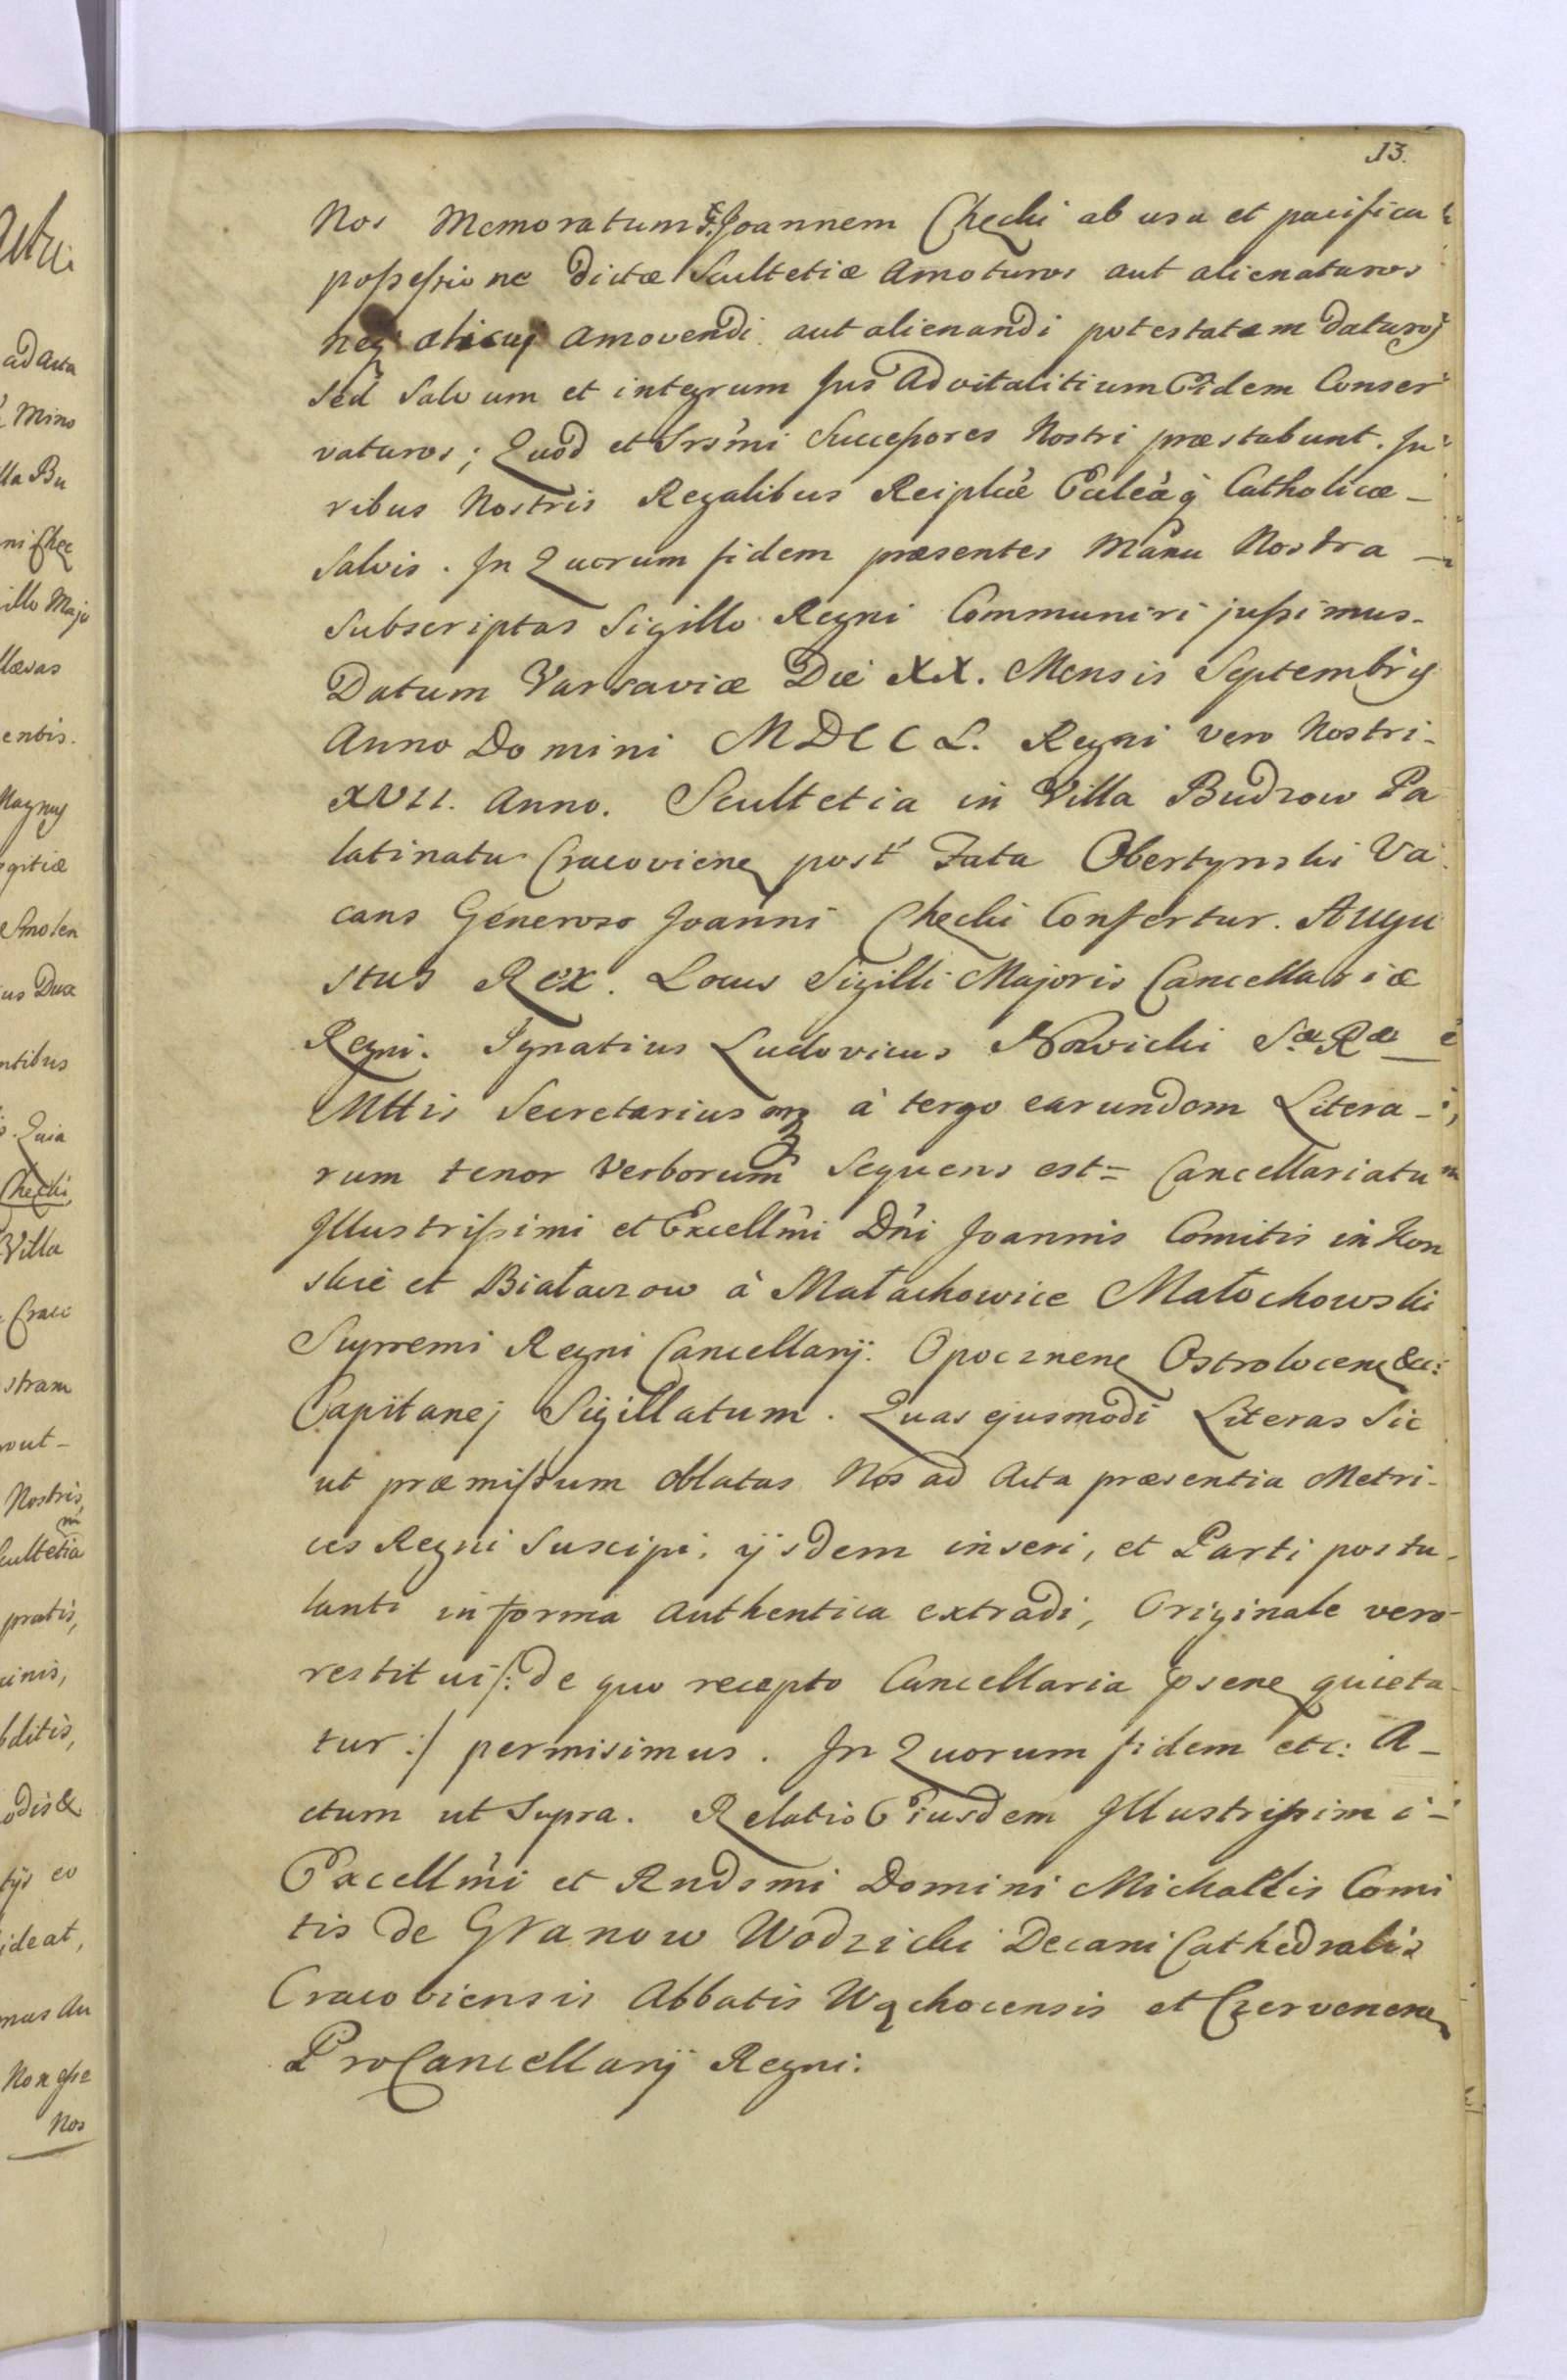 13.
Nos Memoratum G. Joannem Checki ab usu et pacifica
possessione dictæ Scultetiæ Amoturos aut alienaturos
neq alicuj amovendi aut alienandi potestatem daturos
sed Salvum et integrum Jus Advitalitium Eidem Conser
vaturos; Quod et Srsmi Successores Nostri præstabunt. Ju
ribus Nostris Regalibus Reiplcæ Ecleæq Catholicæ –
Salvis. In Quorum fidem præsentes Manu Nostra –
Subscriptas Sigillo Regni Communiri jussimus.
Datum Varsaviæ Die XX. Mensis Septembris
Anno Domini MDCCL. Regni vero Nostri
XVII. Anno. Scultetia in Villa Budzow Pa
latinatu Cracovien post Fata Obertynski Va
cans Generoso Joanni Checki Confertur. Augu
stus Rex. Locus Sigilli Majoris Cancellariæ
Regni. Ignatius Ludovicus Nowicki Sæ Ræ
Mttis Secretarius mp à tergo earundem Litera –
rum tenor Verborum Sequens est = Cancellariatu
Illustrissimi et Excellmi Dni Joannis Comitis in Kon
skie et Białaczow à Małachowice Małochowski
Supremi Regni Cancellarij. Opocznen Ostrolocen &c:
Capitanej Sigillatum. Quas ejusmodi Literas Sic
ut præmissum oblatas Nos ad Acta præsentia Metri-
ces Regni Suscipi, ijsdem inseri, et Parti postu-
lanti in forma Authentica extradi, Originale vero
restitui /: de quo recepto Cancellaria psens quieta-
tur :/ permisimus. In Quorum fidem etc: A –
ctum ut Supra. Relatio Eiusdem Illustrissimi –
Excellmi et Rndsmi Domini Michaelis Comi
tis de Granow Wodzicki Decani Cathedralis
Cracoviensis Abbatis Wąchocensis et Czervenen
ProCancellarij Regni: